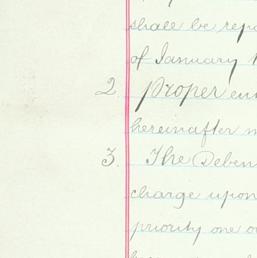 shall be
of January
2. Proper
hereinafter
3. The Deben
charge upon
priority one